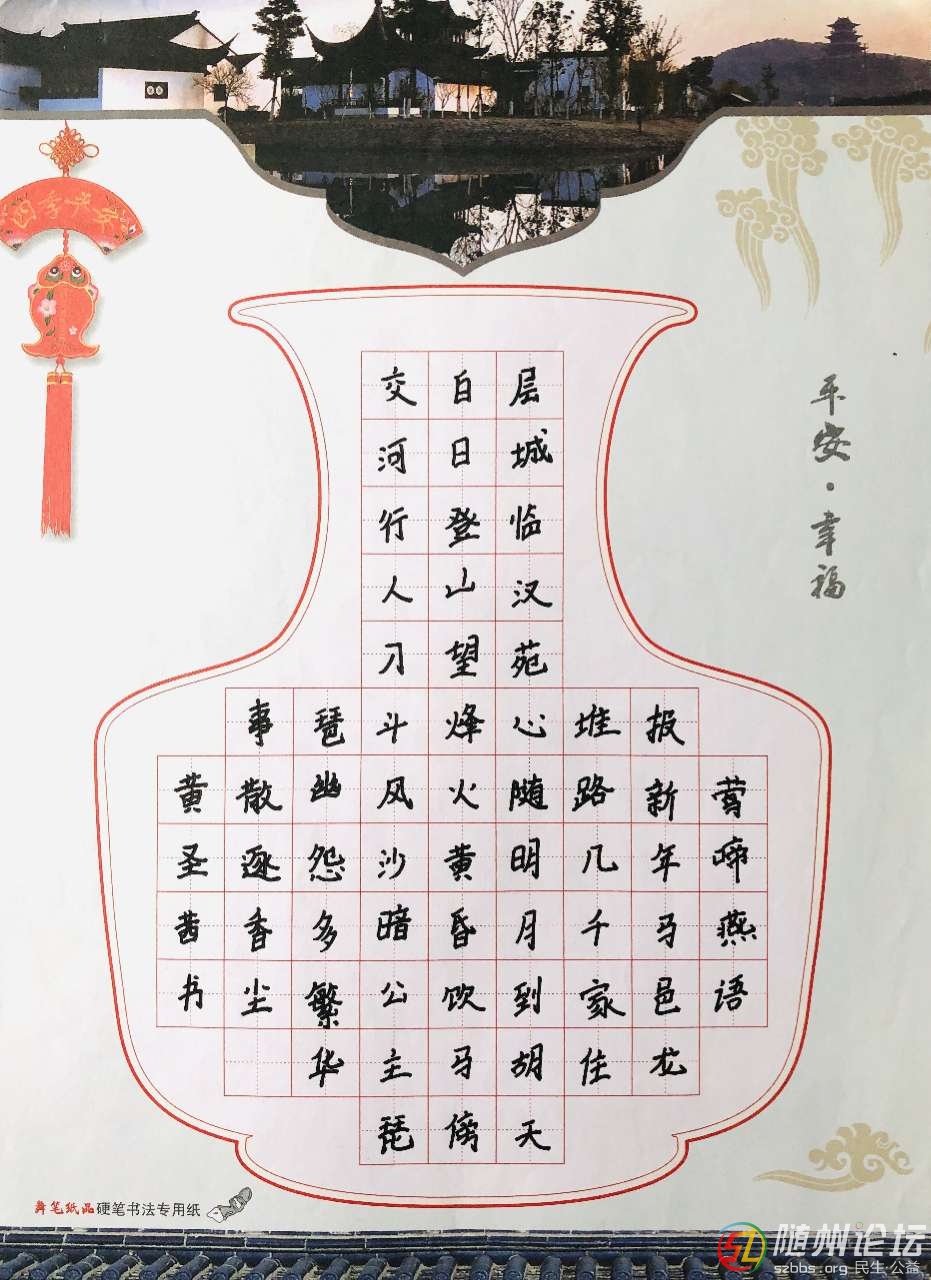 四季平安
平安·幸福
莺啼燕语
报新年马邑龙
堆路几千家住
层城临汉苑心随明月到胡天
白日登山望烽火黄昏饮马傍
交河行人刁斗风沙暗公主琵
琶幽怨多繁华
事散逐香尘
黄圣茜书
舞笔纸品硬笔书法专用纸
随州论坛
szbbs.org 民生·公益